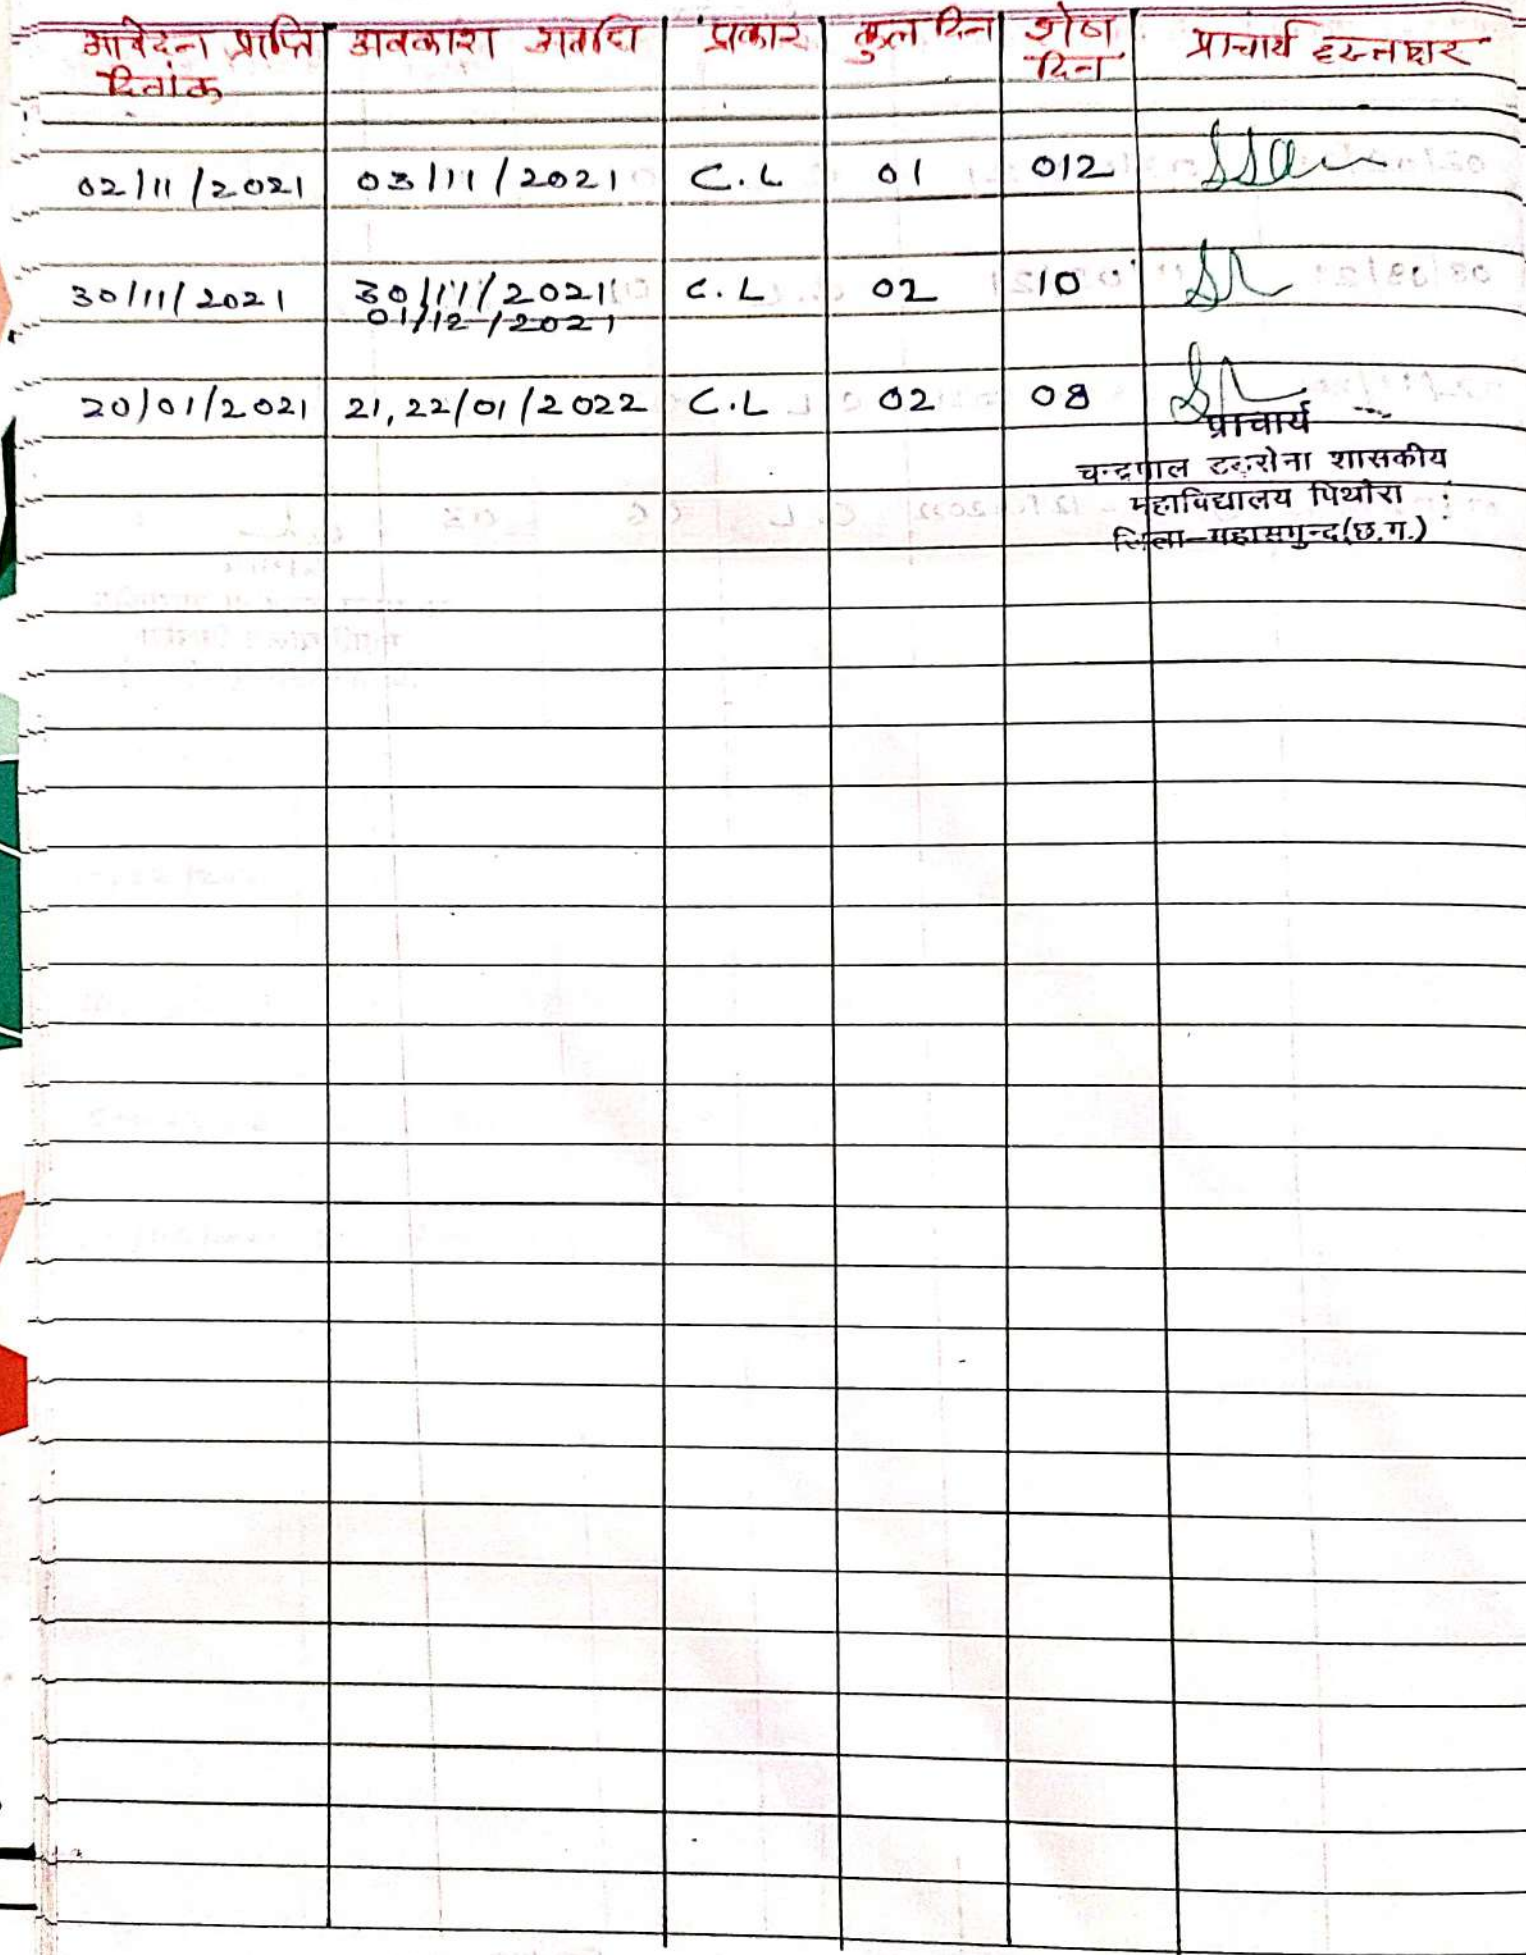 आवेदन प्राप्ति अवकाश अवधि प्रकार कुल दिन शेष प्राचार्य हस्ताक्षर
दिनांक दिन
02/11/2021 03/11/2021 C.L 01 012
30/11/2021 30/11/2021 C.L 02 10
01/12/2021
20/01/2021 21,22/01/2022 C.L 02 08
प्राचार्य
चन्द्रपाल शासकीय
महाविद्यालय पिथौरा
जिला-महासमुन्द(छ.ग.)